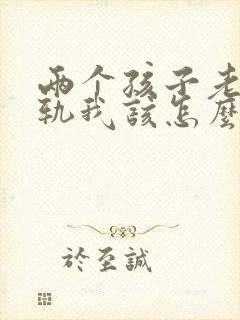 兩个孩子老
軌我該怎麼
於至誠